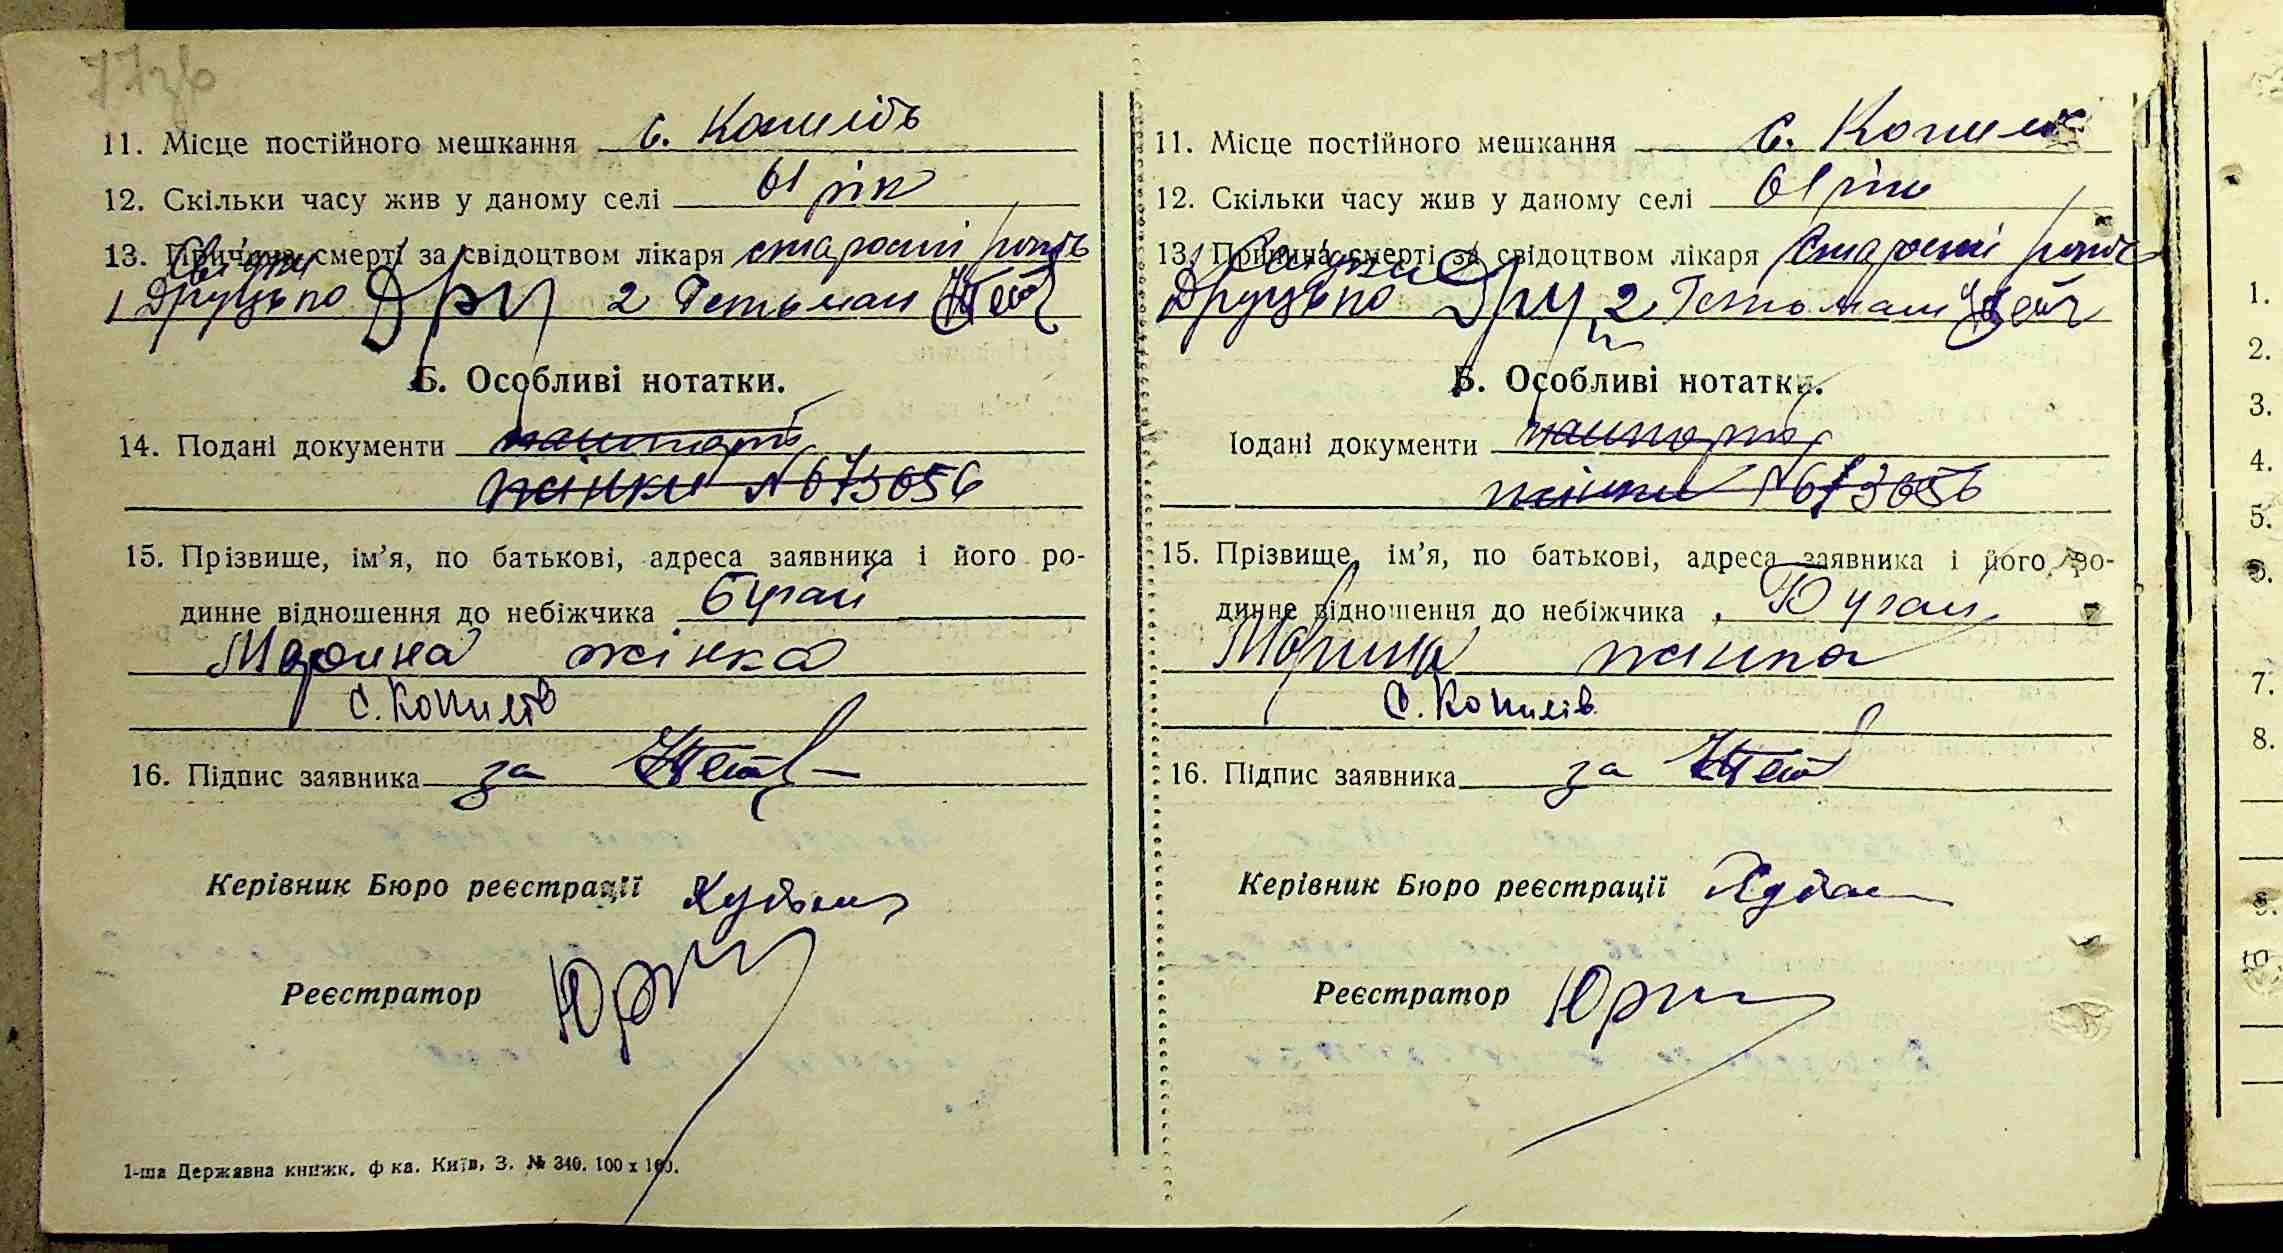 77зв
11. Місце постійного мешкання с. Копилів
12. Скільки часу жив у даному селі 61 рік
13. Причина смерті за свідоцтвом лікаря старости
Свідки
1 Друцько Дру 2 Гетьман
Б. Особливі нотатки.
14. Подані документи пашпорт
жінки N 673656
15. Прізвище, ім'я, по батькові, адреса заявника і його ро-
динне відношення до небіжчика Бугай
Марина жінка
с. Копилів
16. Підпис заявника за
Керівник Бюро реєстрації
Реєстратор
1-ша Державна книжк. ф ка. Київ, З. № 340. 100 х 100.
11. Місце постійного мешкання с. Копилів
12. Скільки часу жив у даному селі 61 рік
13. Причина смерті за свідоцтвом лікаря старости
Свідки
1 Друцько Дру 2 Гетьман
Б. Особливі нотатки.
Подані документи пашпорт
жінки N 673656
15. Прізвище, ім'я, по батькові, адреса заявника і його ро-
динне відношення до небіжчика Бугай
Марина жінка
с. Копилів
16. Підпис заявника за
Керівник Бюро реєстрації
Реєстратор
1.
2.
3.
4.
5.
6.
7.
8.
9.
10